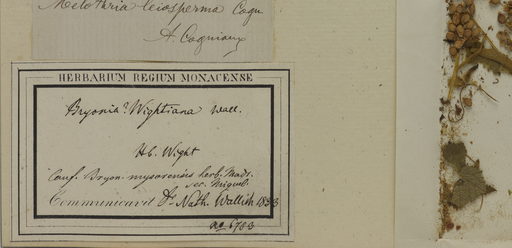 Melothria leiosperma Cogn.
A. Cogniaux
HERBARIUM REGIUM MONACENSE
Bryonia? Wightiana Wall.
Hb. Wight
Conf. Bryon. mysorensis herb. Madr.
sec. Miquel.
Communicavit Dr. Nath. Wallich 1833
no 6703